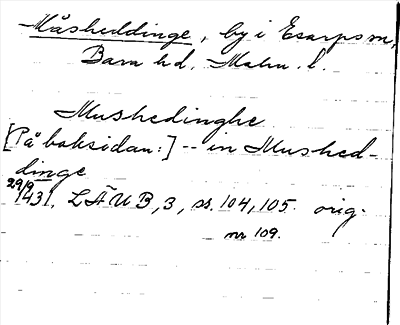 Måsheddinge, by i Esarps sn,
Bara hd. Malm. l.
Mushedinghe
[På baksidan:] -- in Mushed-
dinge
29/9
1431. LÄUB, 3, ss. 104, 105. orig.
nr 109.